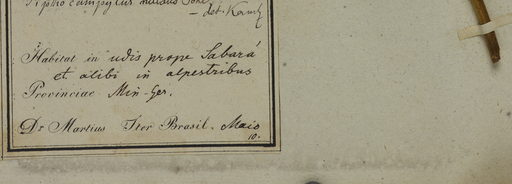 campylus
— det. Kunth
Habitat in udis prope Sabará
et alibi in alpestribus
Provinciae Min-Ger.
Dr Martius Iter Brasil. Maio
10.